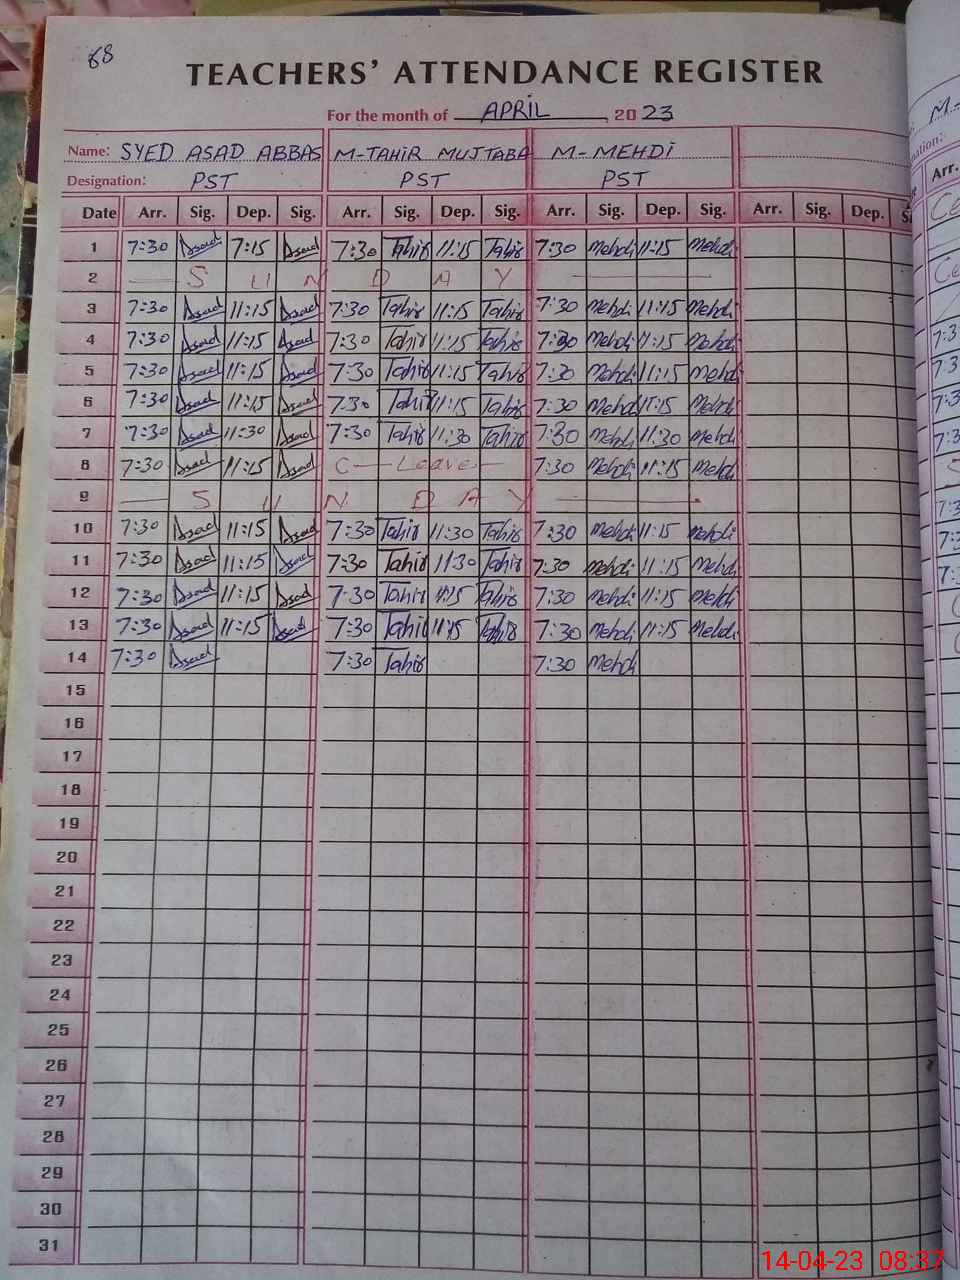 68
TEACHERS' ATTENDANCE REGISTER
For the month of APRIL 2023
Name: SYED ASAD ABBAS M-TAHIR MUJTABA M-MEHDI
Designation: PST PST PST
Date Arr. Sig. Dep. Sig. Arr. Sig. Dep. Sig. Arr. Sig. Dep. Sig. Arr. Sig. Dep. Arr.
1 7:30 Asad 7:15 Asad 7:30 Tahir 11:15 Tahir 7:30 Mehdi 11:15 Mehdi
2 SUNDAY
3 7:30 Asad 11:15 Asad 7:30 Tahir 11:15 Tahir 7:30 Mehdi 11:15 Mehdi
4 7:30 Asad 11:15 Asad 7:30 Tahir 11:15 Tahir 7:30 Mehdi 11:15 Mehdi
5 7:30 Asad 11:15 Asad 7:30 Tahir 11:15 Tahir 7:30 Mehdi 11:15 Mehdi
6 7:30 Asad 11:15 Asad 7:30 Tahir 11:15 Tahir 7:30 Mehdi 11:15 Mehdi
7 7:30 Asad 11:30 Asad 7:30 Tahir 11:30 Tahir 7:30 Mehdi 11:30 Mehdi
8 7:30 Asad 11:15 Asad C-Leave 7:30 Mehdi 11:15 Mehdi
9 SUNDAY
10 7:30 Asad 11:15 Asad 7:30 Tahir 11:30 Tahir 7:30 Mehdi 11:15 Mehdi
11 7:30 Asad 11:15 Asad 7:30 Tahir 11:30 Tahir 7:30 Mehdi 11:15 Mehdi
12 7:30 Asad 11:15 Asad 7:30 Tahir 11:15 Tahir 7:30 Mehdi 11:15 Mehdi
13 7:30 Asad 11:15 Asad 7:30 Tahir 11:15 Tahir 7:30 Mehdi 11:15 Mehdi
14 7:30 Asad 7:30 Tahir 7:30 Mehdi
15
16
17
18
19
20
21
22
23
24
25
26
27
28
29
30
31
14-04-23 08:37